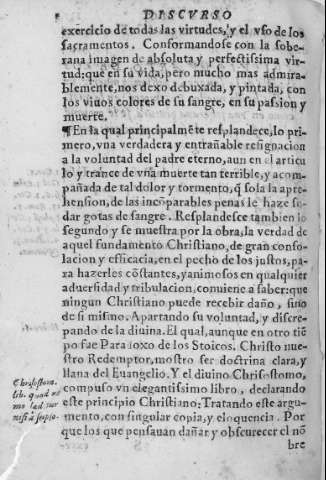 DISCVRSO
exercicio de todas las virtudes, y el vso de los
sacramentos. Conformandose con la sobe-
rana imagen de absoluta y perfectissima vir-
tud: que en su vida, pero mucho mas admira-
blemente, nos dexo debuxada, y pintada, con
los viuos colores de su sangre, en su passion y
muerte.
¶En la qual principalmēte resplandece, lo pri-
mero, vna verdadera y entrañable resignacion
a la voluntad del padre eterno, aun en el articu
lo y trance de vna muerte tan terrible, y acom-
pañada de tal dolor y tormento, q̃ sola la apre-
hension, de las incōparables penas le haze su-
dar gotas de sangre. Resplandesce tambien lo
segundo y se muestra por la obra, la verdad de
aquel fundamento Christiano, de gran conso-
lacion y efficacia, en el pecho de los justos, pa-
ra hazerles cōstantes, y animosos en qualquier
aduersidad y tribulacion, conuiene a saber: que
ningun Christiano puede recibir daño, sino
de si mismo. Apartando su voluntad, y discre-
pando de la diuina. El qual, aunque en otro tiē
po fue Paradoxo de los Stoicos. Christo nue-
stro Redemptor, mostro ser doctrina clara, y
llana del Euangelio. Y el diuino Chrisostomo,
compuso vn elegantissimo libro, declarando
este principio Christiano: Tratando este argu-
mento, con singular copia, y eloquencia. Por
que los que pensauan dañar y obscurecer el nō
bre
Chrisostom.
lib. quod ne
mo lædatur
nisi à seipso.